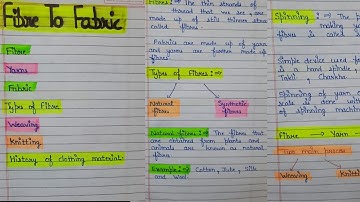 Fibre To Fabric
Fibre
Yarns
Fabric
Types of Fibre
Weaving
Knitting
History of clothing material.
Fibres :⇒ The thin strands of
thread that we see are
made up of still thinner
called fibres.
Fabrics are made up of yarn
and yarns are further made
fibres.
Types of Fibres :⇒
Natural fibres
Synthetic fibres
Natural fibres :⇒ The fibres that
are obtained from plants and
animals are known as natural
fibres.
Example :⇒ Cotton, Jute, Silk
and Wool
Spinning :⇒ The
making
fibres is called
Simple device used
is a hand spindle
Takli, Charkha
Spinning of yarn
scale is done with
of spinning machine
Fibre → Yarn
Two main process
Weaving
Knitt